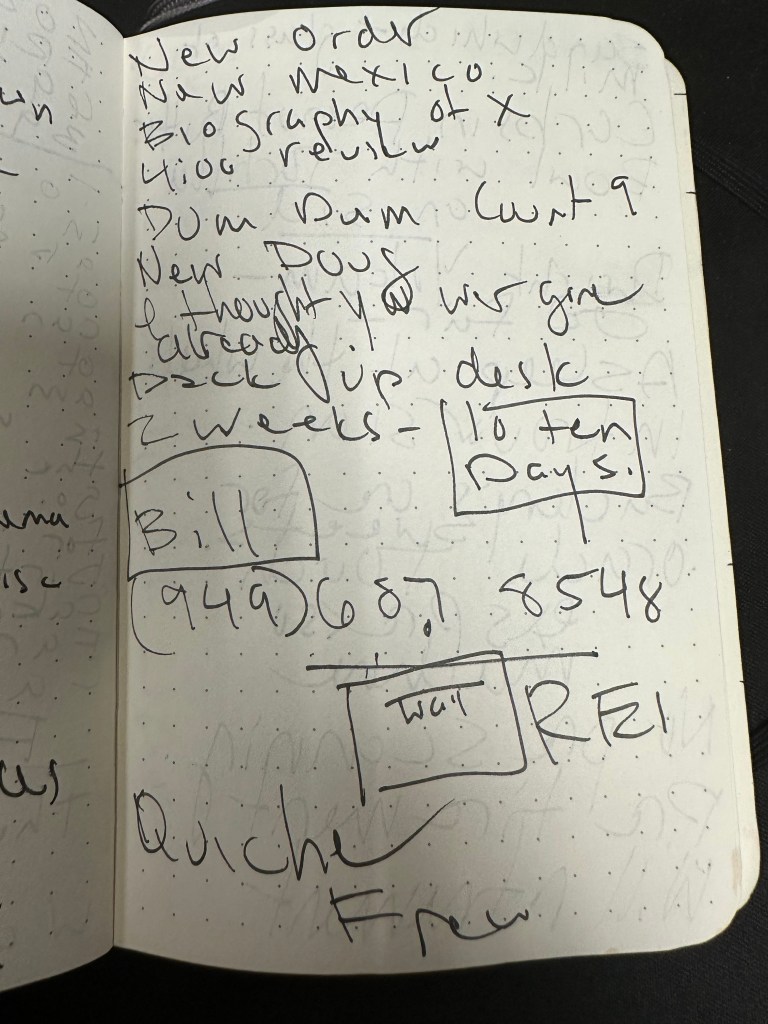 New Order
New Mexico
Biography of X
4:00 review
Dum Dum Count 9
New Doug
I thought you wer gone
already!
Back up desk
2 weeks - 10 ten
Days.
Bill
(949) 687 8548
wall
REI
Quiche